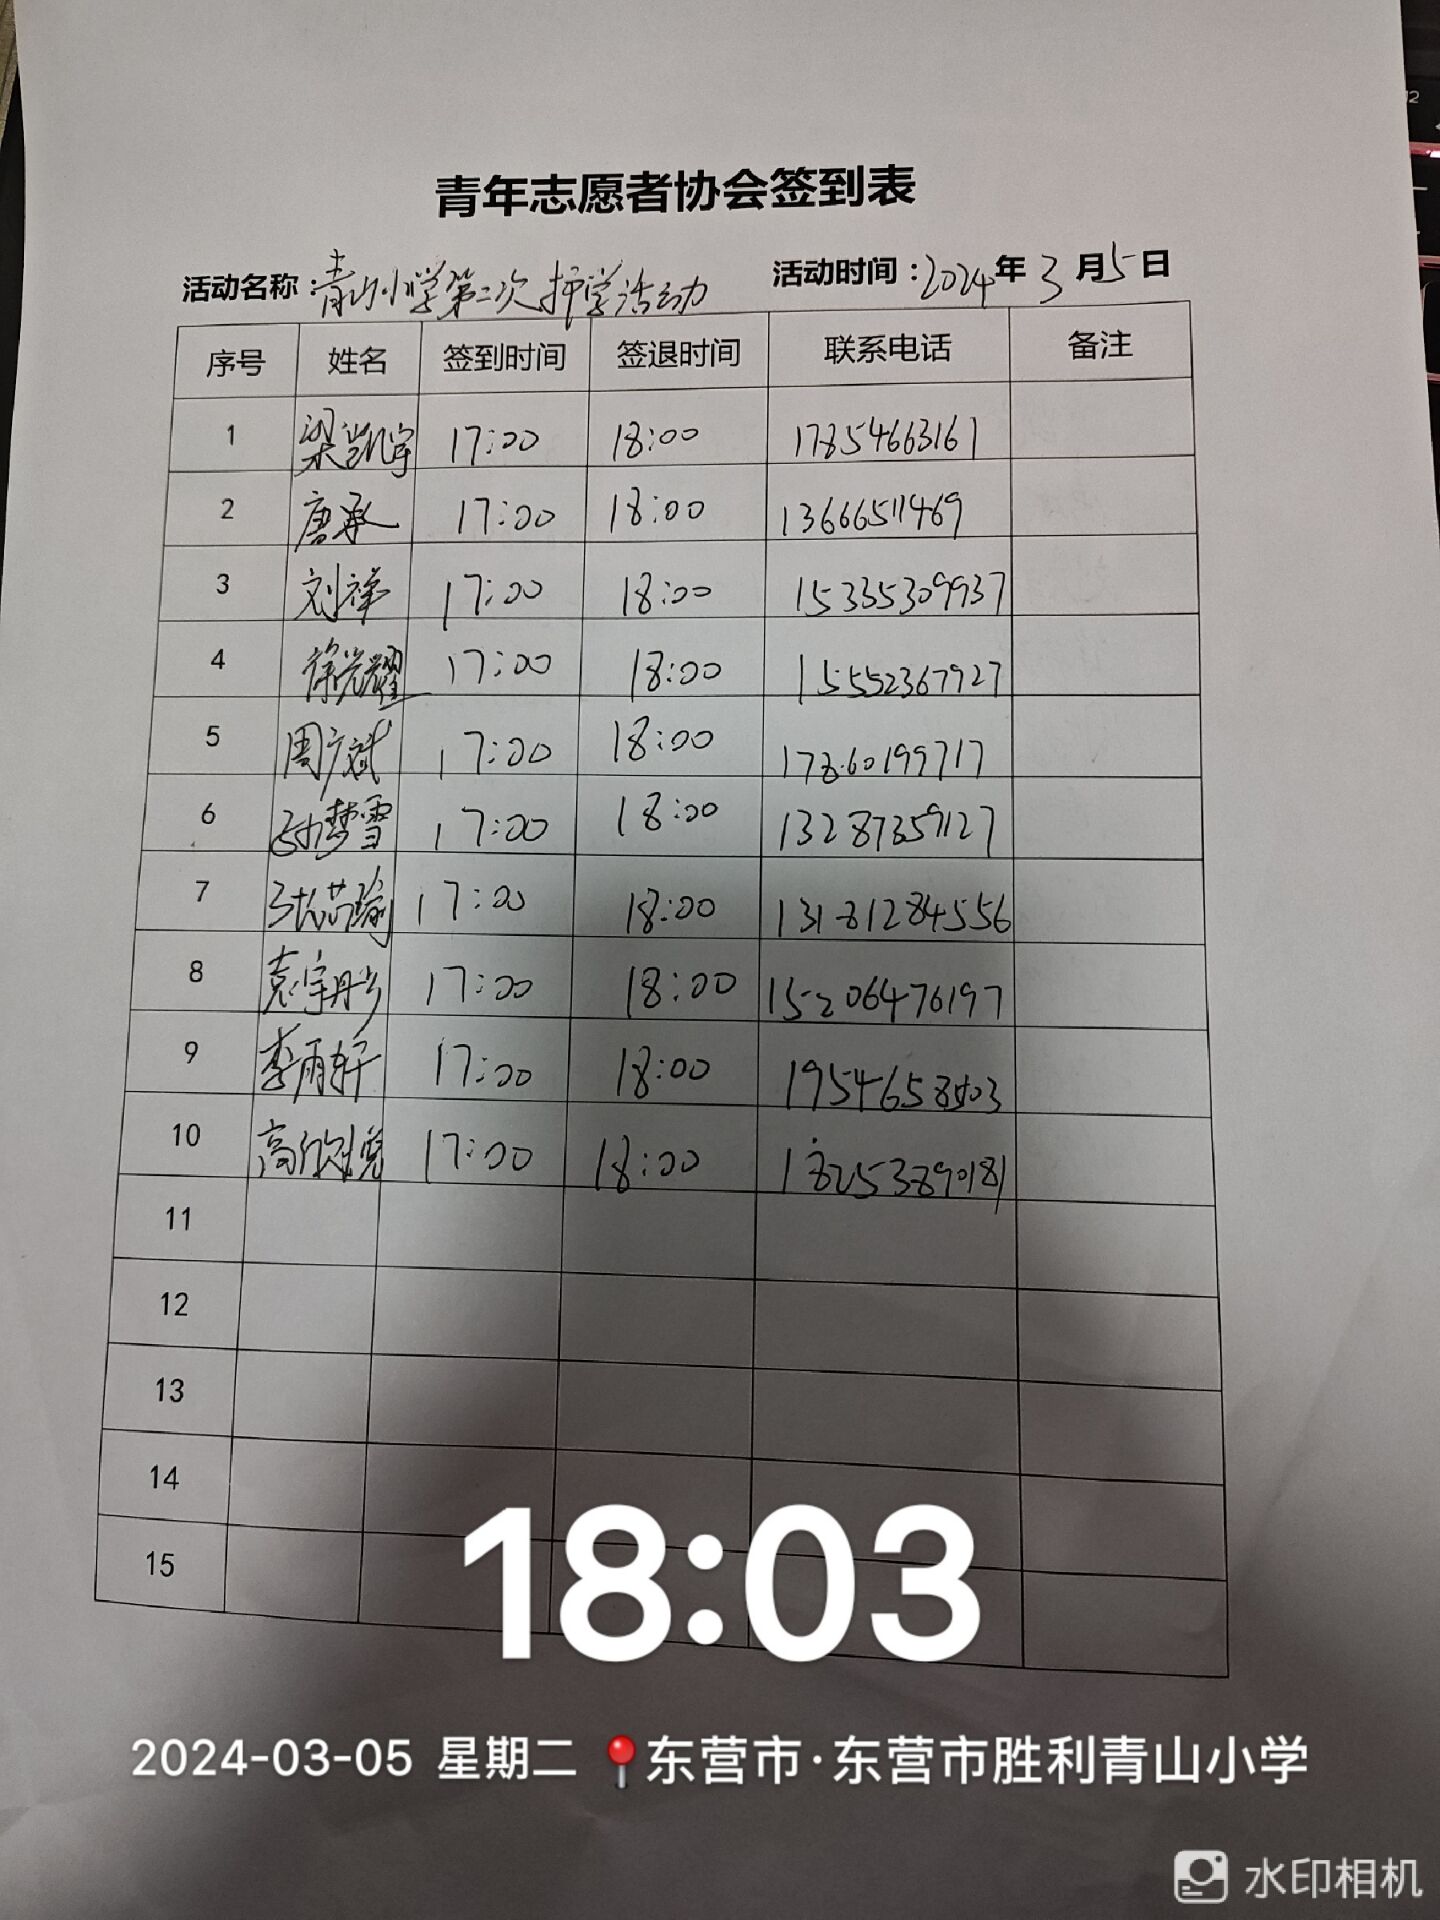 青年志愿者协会签到表
活动名称：青山小学第二次护学活动 活动时间：2024年3月5日
序号 姓名 签到时间 签退时间 联系电话 备注
1 梁凯宇 17:00 18:00 17854663161
2 唐承 17:00 18:00 13666511469
3 刘祥 17:00 18:00 15335309937
4 徐光耀 17:00 18:00 15552367927
5 周广斌 17:00 18:00 17860199717
6 孙梦雪 17:00 18:00 13287359127
7 17:00 18:00 13181284556
8 袁宇彤 17:00 18:00 15206476197
9 李雨轩 17:00 18:00
10 17:00 18:00 18253890181
11
12
13
14
15
18:03
2024-03-05 星期二 东营市·东营市胜利青山小学
水印相机